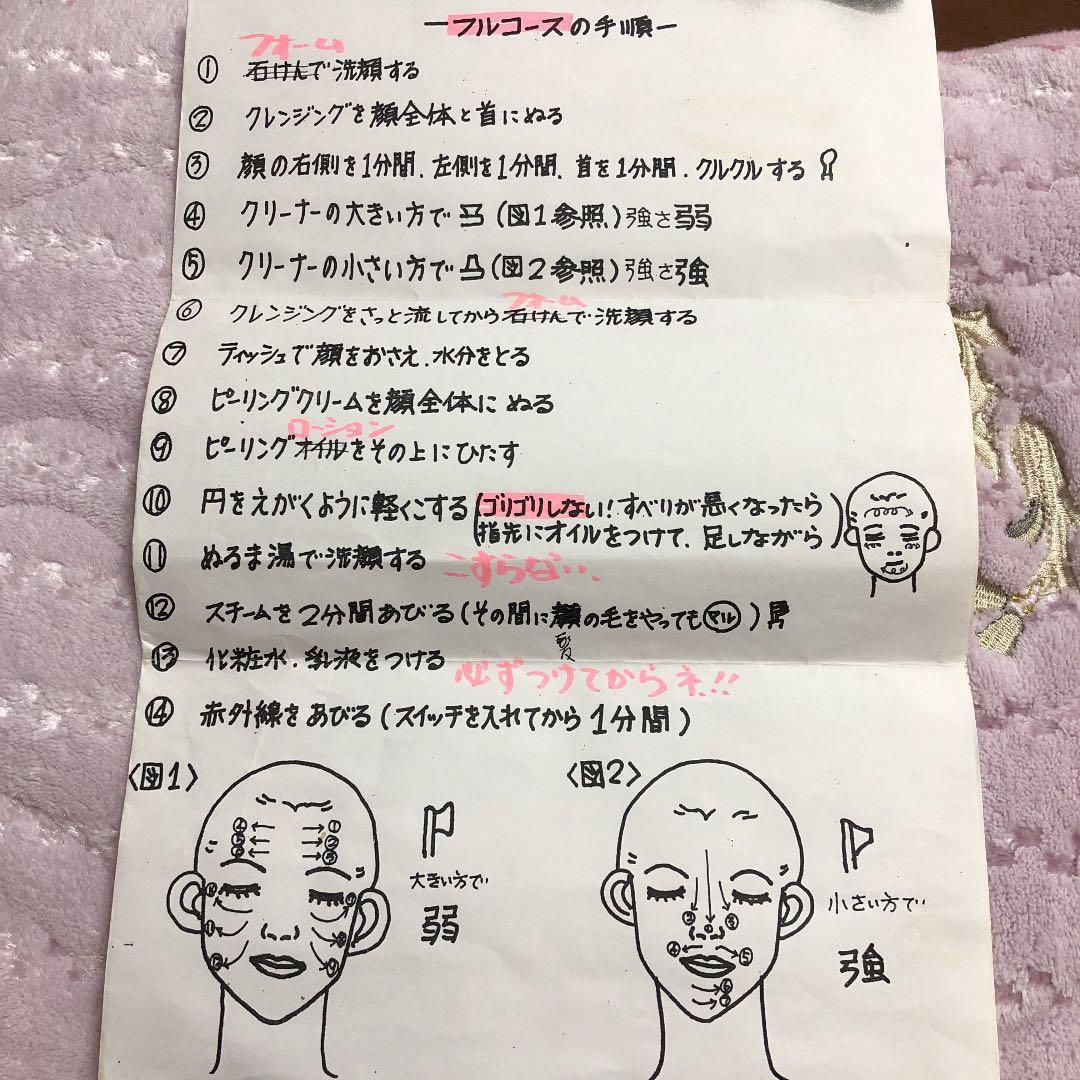 ーフルコースの手順ー
フォーム
① 石けんで洗顔する
② クレンジングを顔全体と首にぬる
③ 顔の右側を1分間、左側を1分間、首を1分間、クルクルする
④ クリーナーの大きい方で (図1参照) 強さ弱
⑤ クリーナーの小さい方で (図2参照) 強さ強
フォーム
⑥ クレンジングをさっと流してから石けんで洗顔する
⑦ ティッシュで顔をおさえ、水分をとる
⑧ ピーリングクリームを顔全体にぬる
ローション
⑨ ピーリングオイルをその上にひたす
⑩ 円をえがくように軽くこする (ゴリゴリしない!すべりが悪くなったら
指先にオイルをつけて、足しながら)
⑪ ぬるま湯で洗顔する こすらない、
⑫ スチームを2分間あびる (その間に の毛をやっても マル)
髪
⑬ 化粧水、乳液をつける
必ずつけてからネ!!
⑭ 赤外線をあびる (スイッチを入れてから1分間)
〈図1〉 〈図2〉
④ ① 
⑤ ② 
⑥ ③
大きい方で
弱
⑩ ⑦
⑪ ⑧
⑫ ⑨
小さい方で
強
② ① ③
④ ⑤
⑥
⑦